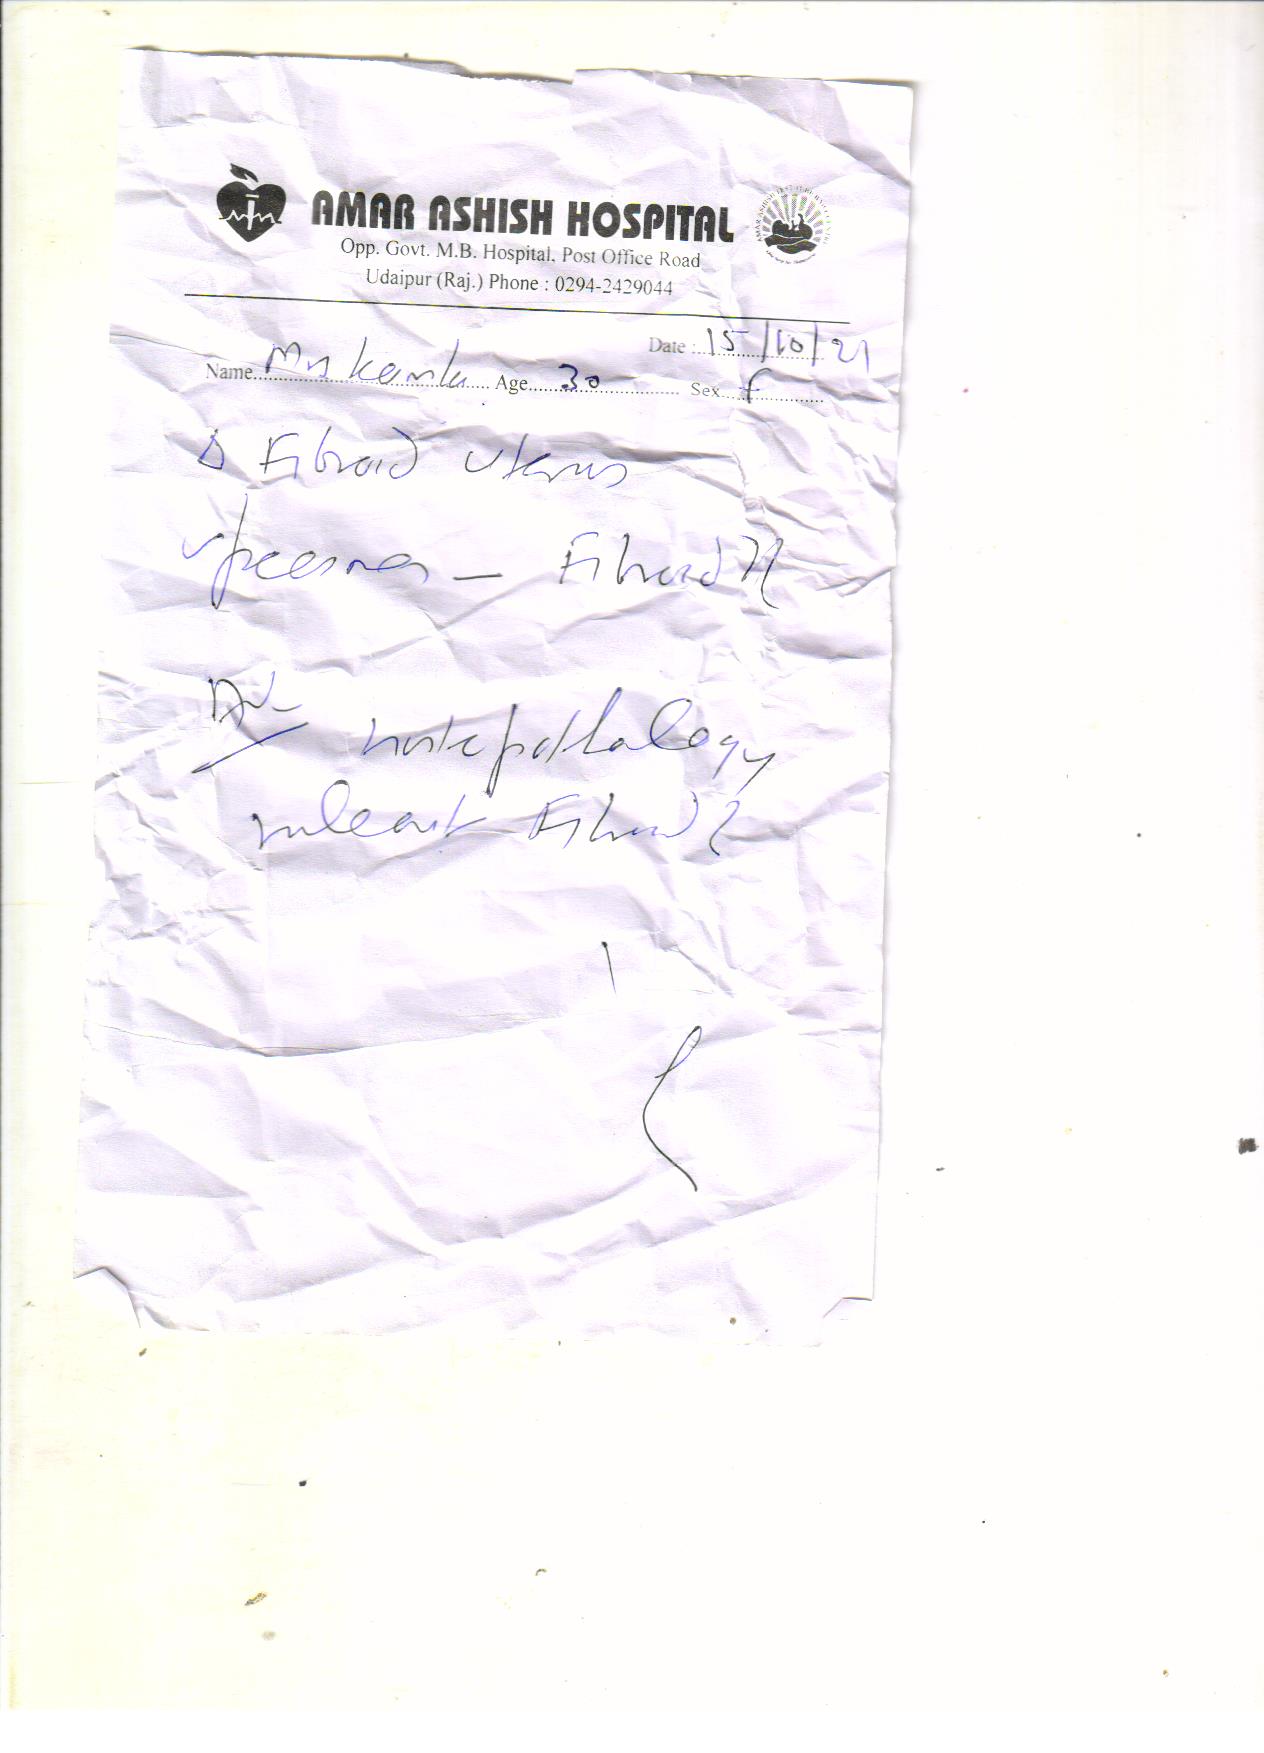 AMAR ASHISH HOSPITAL
Opp. Govt. M.B. Hospital, Post Office Road
Udaipur (Raj.) Phone : 0294-2429044
Date : 15/10/21
Name Mrs Age 30 Sex F
Δ Fibroid uterus
specimen — Fibroid
Adv
histopathology
Fibroid